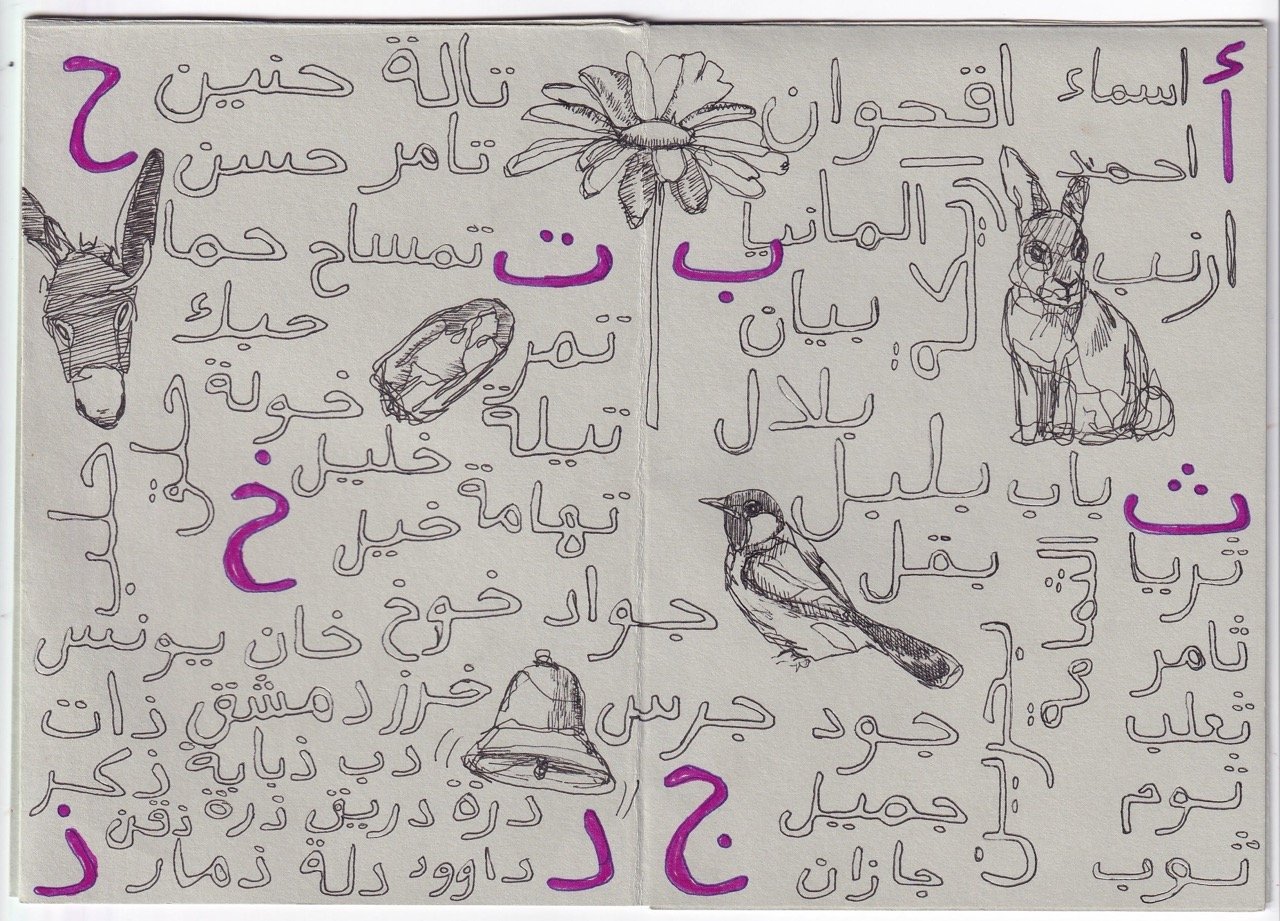 أ
اسماء
احمد
ارنب
اقحوان
المانيا
ب
بيان
بلال
بلبل
باب
بقل
ت
تالة
تامر
تمساح
تمر
تهامة
ث
ثريا
ثامر
ثعلب
ثوم
ثوب
ج
جواد
جرس
جود
جميل
جازان
ح
حنين
حسن
حما
حبك
حلب
خ
خولة
خليل
خيل
خوخ
خان يونس
خرز
د
دمشق
دب
درة
دريق
داوود
دلة
ذ
ذات
ذبابة
ذكر
ذرة
ذقن
ذمار